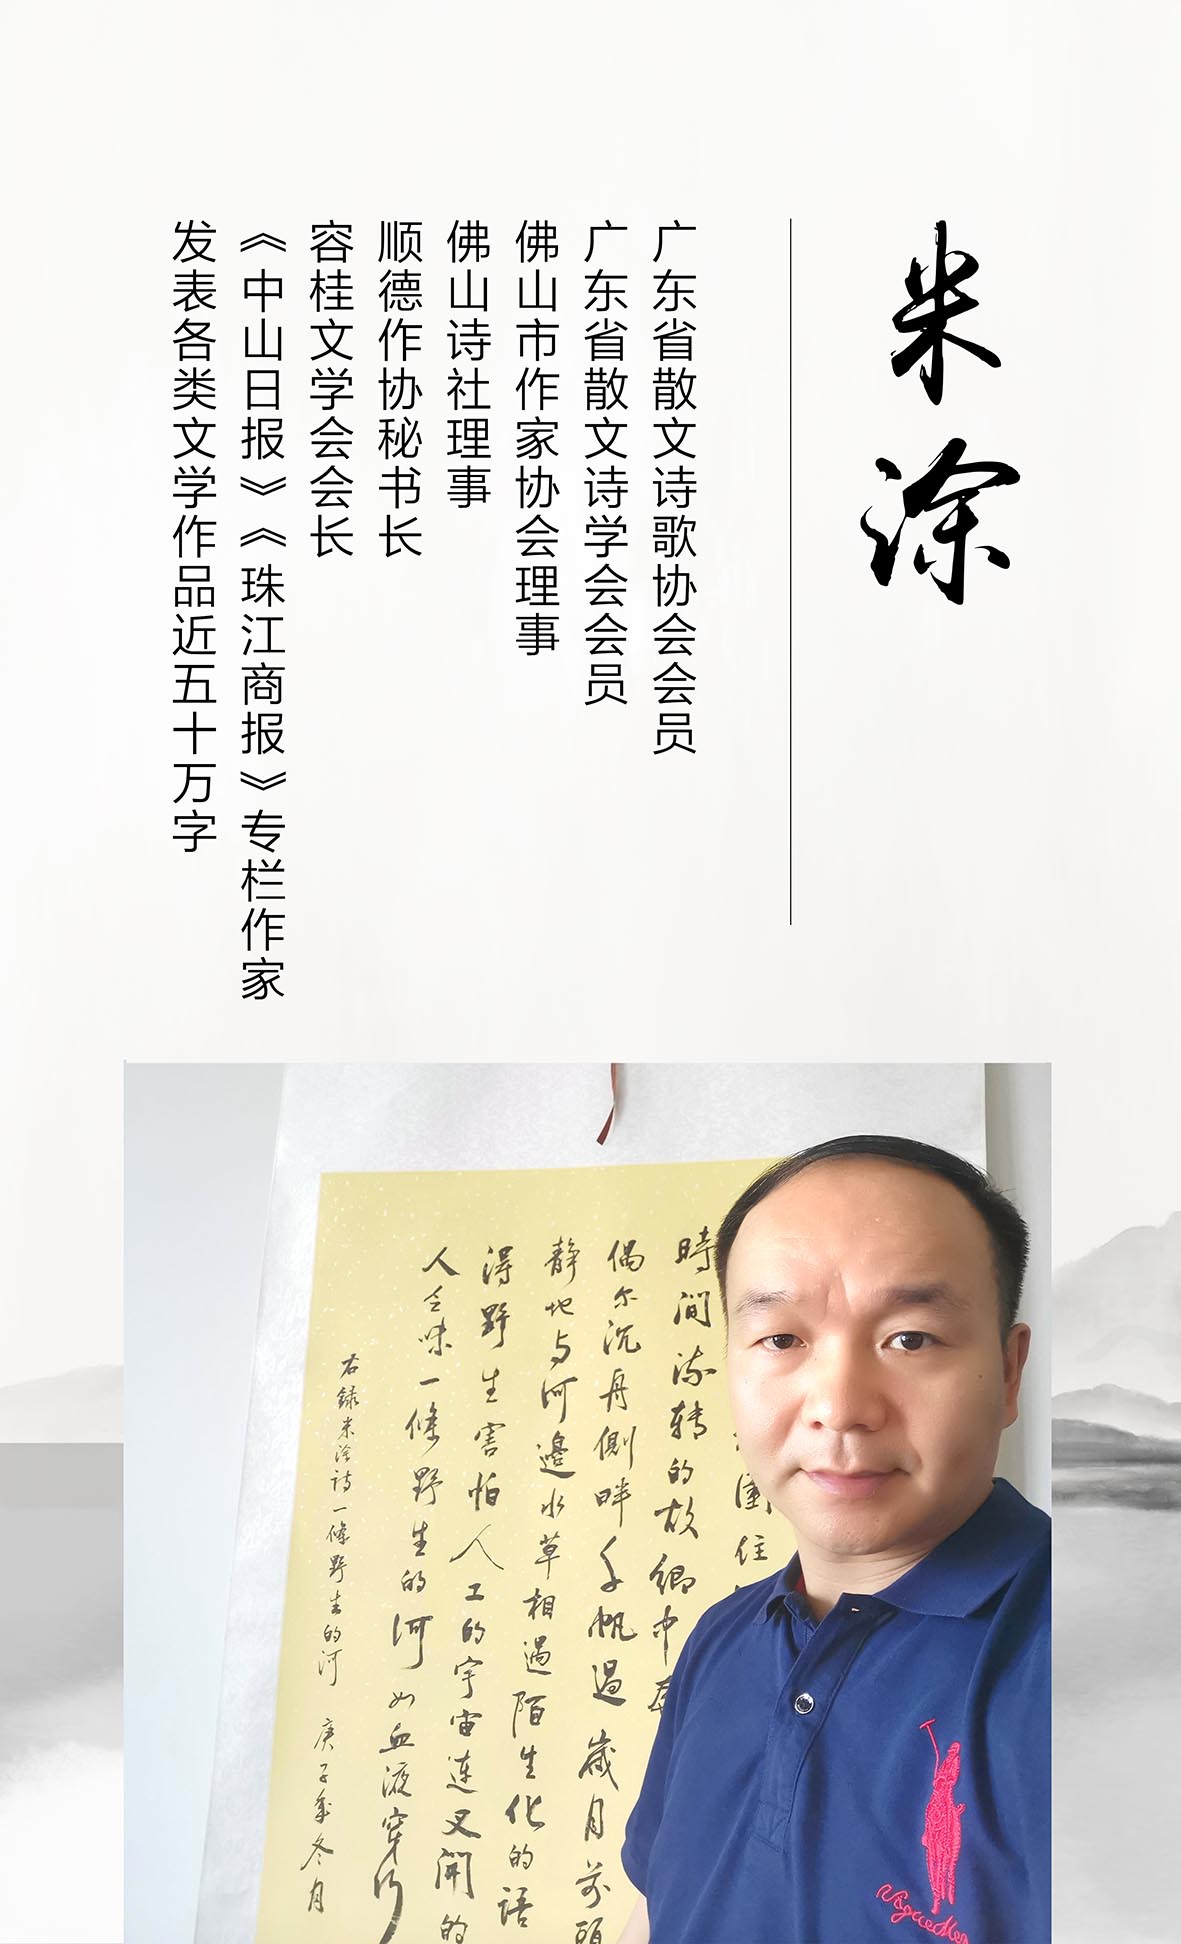 米涂
广东省散文诗歌协会会员
广东省散文诗学会会员
佛山市作家协会理事
佛山诗社理事
顺德作协秘书长
容桂文学会会长
《中山日报》《珠江商报》专栏作家
发表各类文学作品近五十万字
圍住
時间流转的故鄉中
偶尔沉舟側畔千帆過歲月前頭
静地与河邊水草相遇陌生化的語
得野生害怕人工的宇宙連叉開的
人之味一條野生的河如血液穿行
右録米涂詩一條野生的河 庚子年冬月